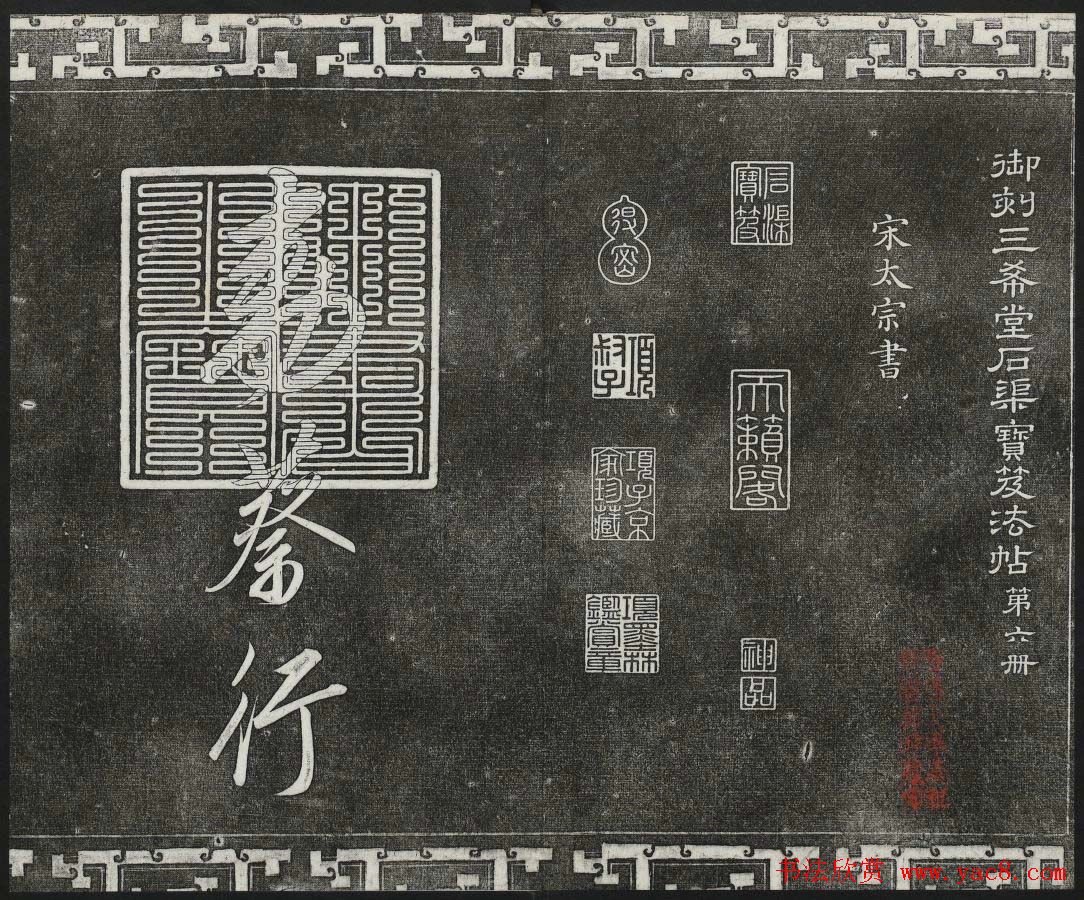 御刻三希堂石渠寶笈法帖第六册
宋太宗書
石渠寶笈
天籟閣
神品
得密
項叔子
項子京家珍藏
項墨林鑑賞章
勅蔡行
书法欣赏 www.yac8.com